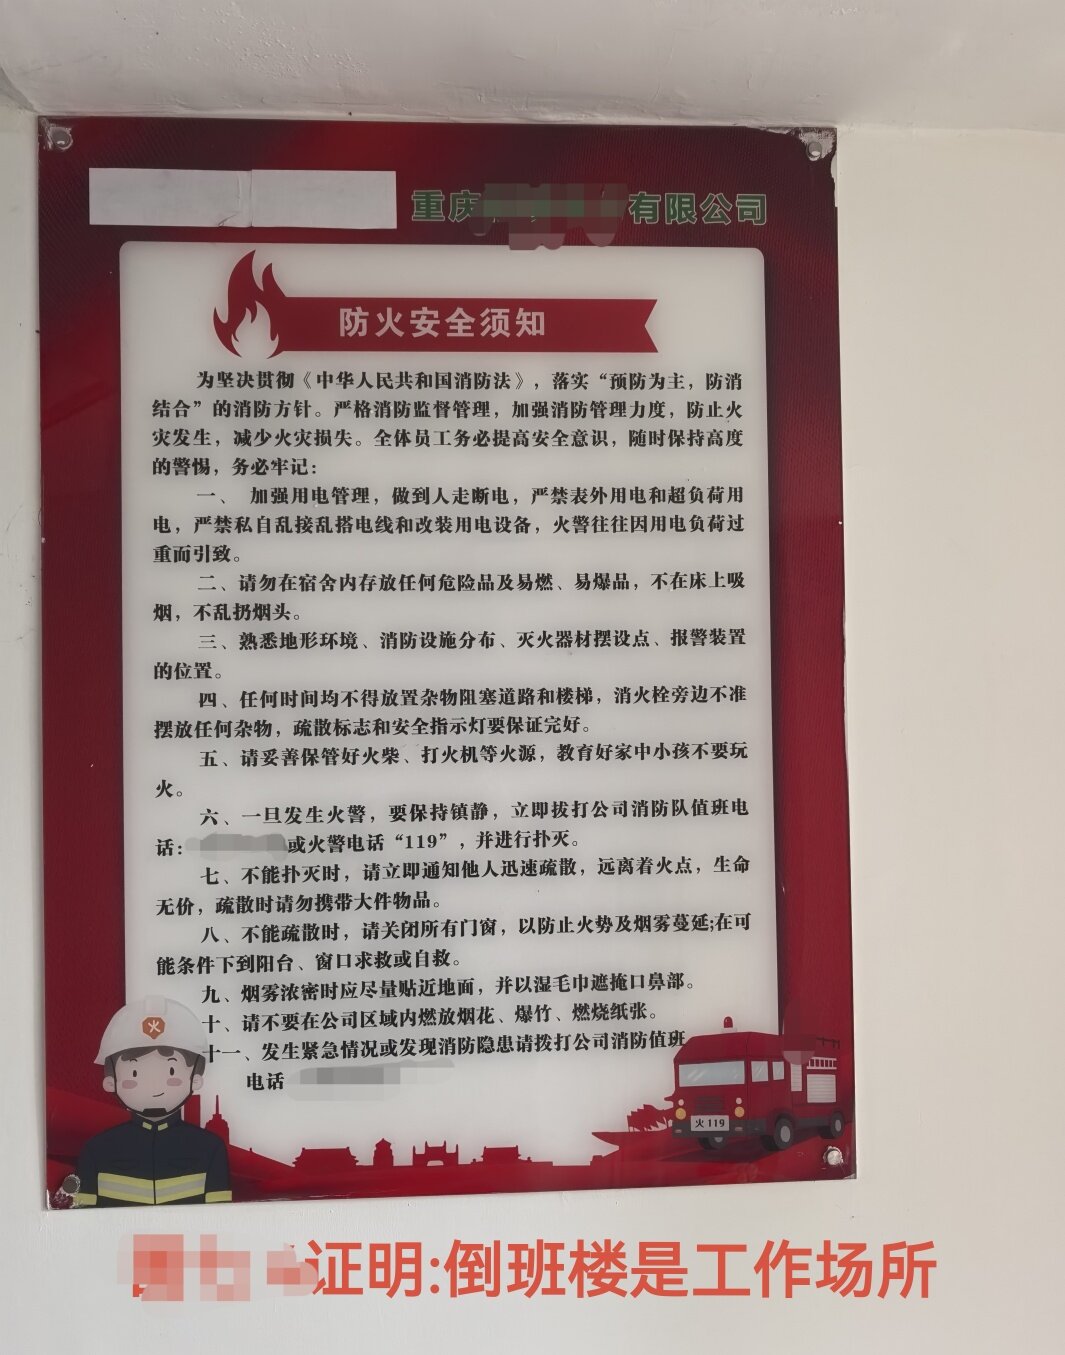 重庆 有限公司
防火安全须知
为坚决贯彻《中华人民共和国消防法》，落实“预防为主，防消
结合”的消防方针。严格消防监督管理，加强消防管理力度，防止火
灾发生，减少火灾损失。全体员工务必提高安全意识，随时保持高度
的警惕，务必牢记：
一、 加强用电管理，做到人走断电，严禁表外用电和超负荷用
电，严禁私自乱接乱搭电线和改装用电设备，火警往往因用电负荷过
重而引致。
二、请勿在宿舍内存放任何危险品及易燃、易爆品，不在床上吸
烟，不乱扔烟头。
三、熟悉地形环境、消防设施分布、灭火器材摆设点、报警装置
的位置。
四、任何时间均不得放置杂物阻塞道路和楼梯，消火栓旁边不准
摆放任何杂物，疏散标志和安全指示灯要保证完好。
五、请妥善保管好火柴、打火机等火源，教育好家中小孩不要玩
火。
六、一旦发生火警，要保持镇静，立即拔打公司消防队值班电
话： 或火警电话“119”，并进行扑灭。
七、不能扑灭时，请立即通知他人迅速疏散，远离着火点，生命
无价，疏散时请勿携带大件物品。
八、不能疏散时，请关闭所有门窗，以防止火势及烟雾蔓延;在可
能条件下到阳台、窗口求救或自救。
九、烟雾浓密时应尽量贴近地面，并以湿毛巾遮掩口鼻部。
十、请不要在公司区域内燃放烟花、爆竹、燃烧纸张。
十一、发生紧急情况或发现消防隐患请拨打公司消防值班
电话
火
火 119
证明:倒班楼是工作场所